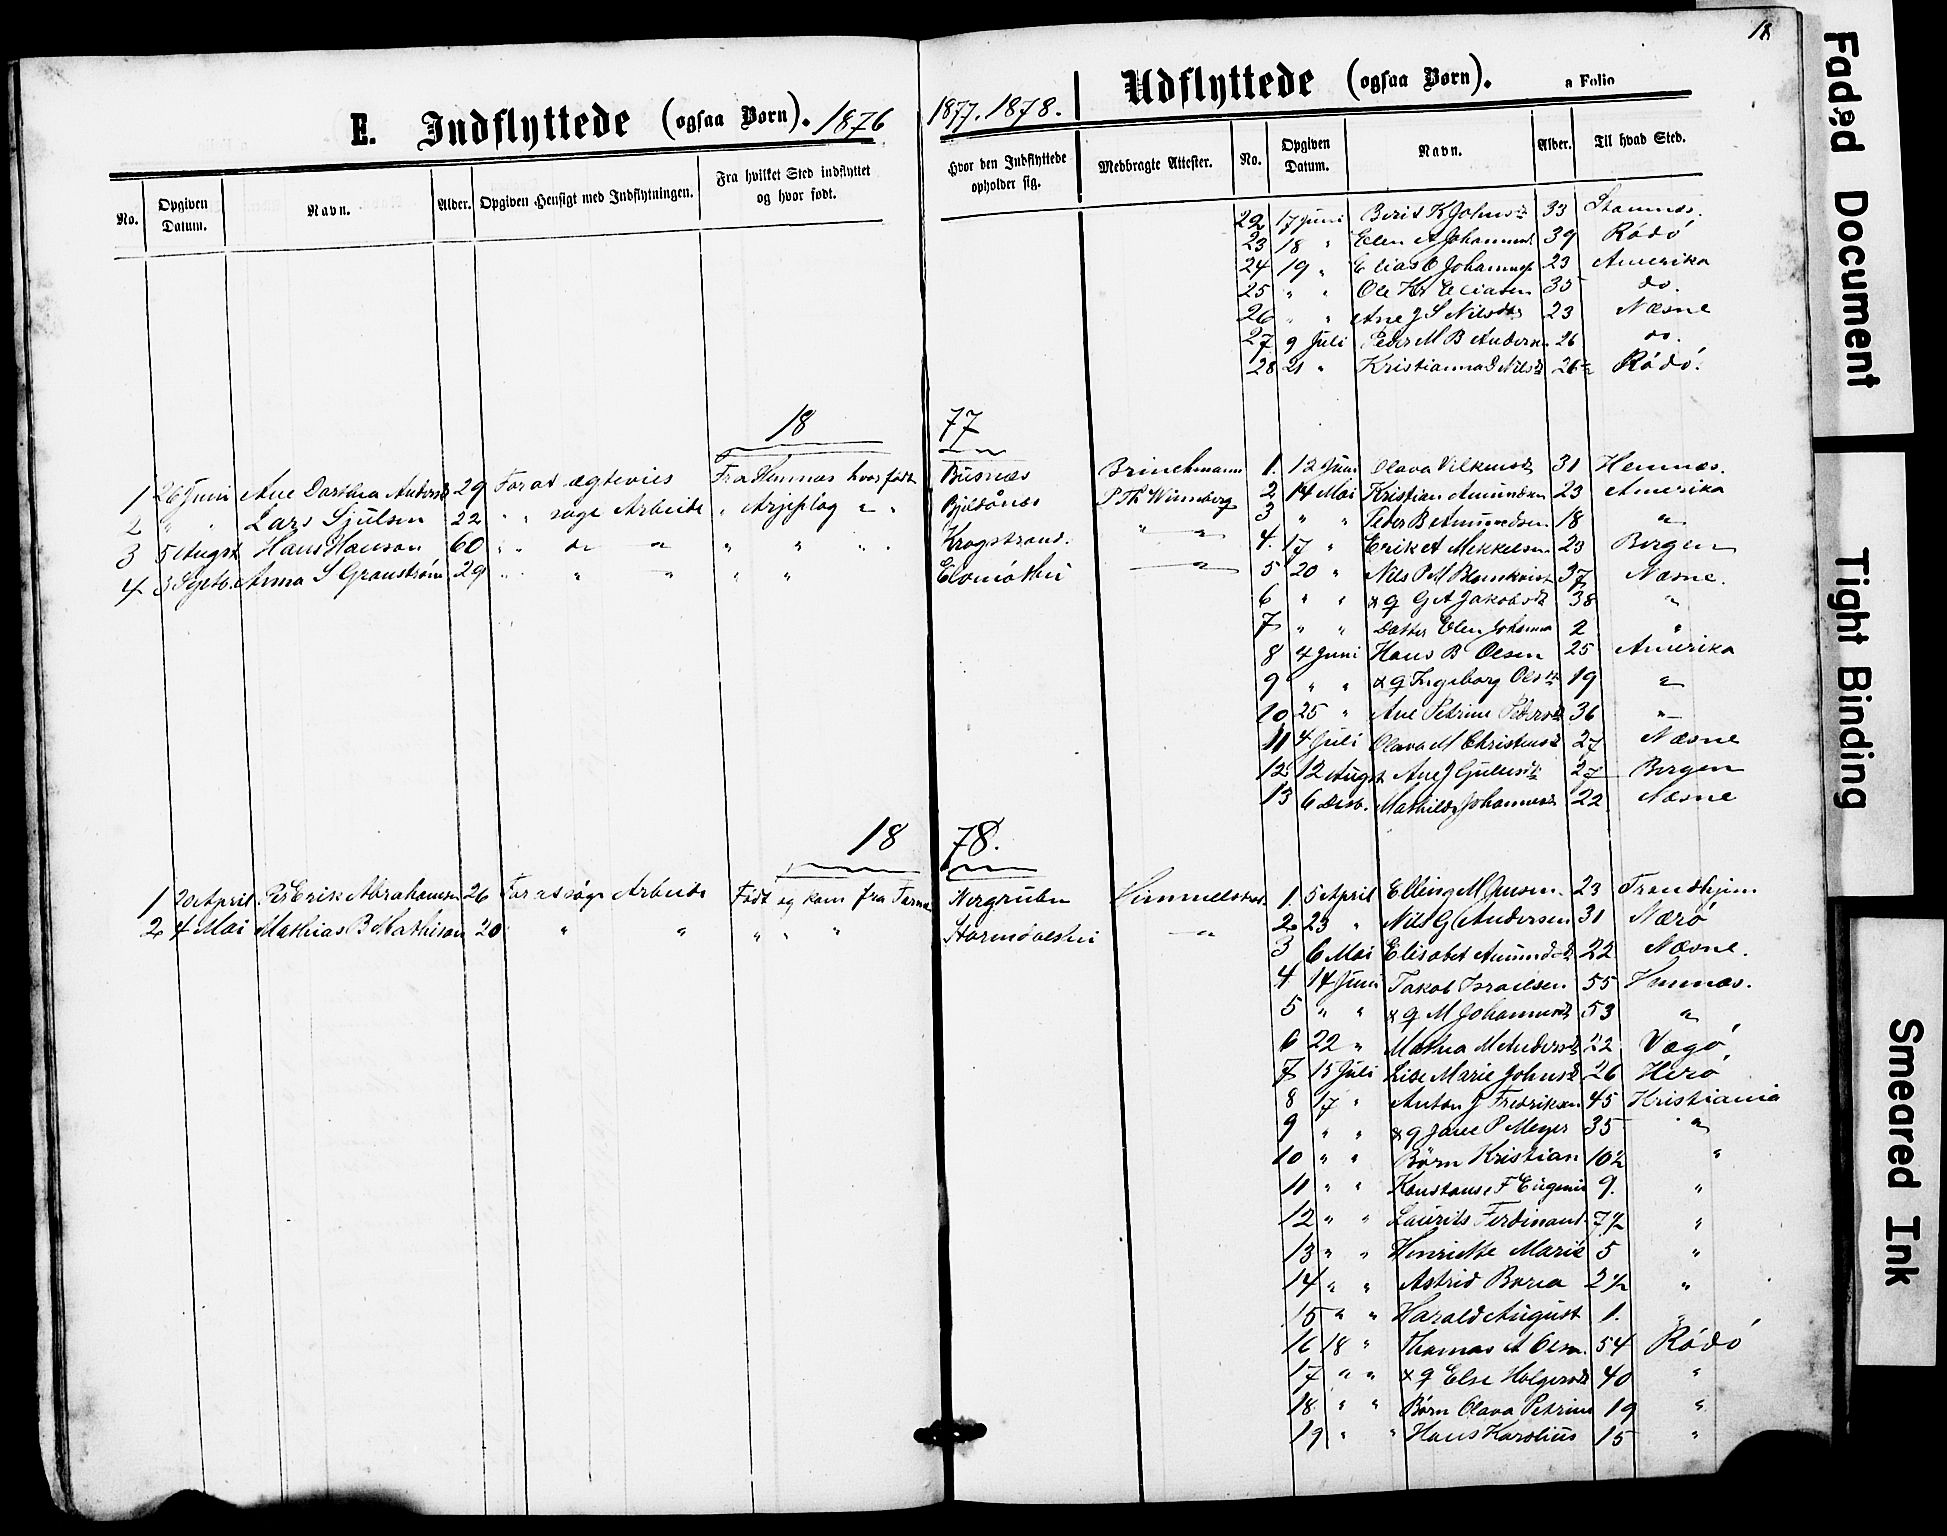 18
E. Indflyttede (ogsaa Børn). 1876
1877. 1878.
Udflyttede (ogsaa Børn). a Folio
No. Opgiven Datum. Navn. Alder. Opgiven Hensigt med Indflytningen. Fra hvilket Sted indflyttet og hvor født.
Hvor den Indflyttede opholder sig. Medbragte Attester. No. Opgiven Datum. Navn. Alder. Til hvad Sted.
22 17 Juni Berit K Johnsd 33 Stamnæs.
23 18 " Elen A Johannesd 39 Rödö
24 19 " Elias O Johannes 23 Amerika
25 " " Ole Hr Eliasen 35 do.
26 " " Ane J S Nilsdtr 23 Næsne
27 9 Juli Peder M B Andersen 26 do.
28 21 " Kristianna J Nilsd 26 Rödö.
18 77
1 26 Juni Ane Dorthea Andersd 29 For at ægtevies Fra Hemnæs hvor født Busnæs Brinchmann
2 " " Lars Sjulsen 22 " " søge Arbeide " Arjeplog " " Bjeldånæs P Th Winnberg
3 5 Augst Hans Hanson 60 " " " " " " " " Krogstrand. " "
4 3 Septb. Anna S Granström 29 " " " " " " "
1. 12 Juni Olava Vilkensd 31 Hemnæs.
2 14 Mai Kristian Amundsen 23 Amerika
3 " " Peder B Amundsen 18 "
4. 17 " Erik A Mikkelsen 23 Bergen
5 20 " Nils P M Blomkvist 37 Næsne.
6 " " & q G A Jakobsd 38 "
7 " " Datter Elen Johanna 2 "
8 4 Juni Hans B Olsen 25 Amerika
9 " " & q Ingeborg Olsd 19 "
10 25 " Ane Petrine Pedersd 36 "
11 4 Juli Olava M Christensd 27 Næsne
12 12 Augst Ane J 27 Bergen
13 6 Desb. Mathilde Johannesd 22 Næsne
18 78.
1 20 April Per Erik Abrahamsen 26 For at søge Arbeide Født og kom fra Tärna Nergruben
2 4 Mai Mathias B Mathison 20 " " " " " Stormdalshei "
1. 5 April Elling M Jensen 23 Trondhjem
2. 23 " Nils G Andersen 31 Nærö
3 6 Mai Elisabet Amundsd 22 Næsne.
4 14 Juni Jakob Israelsen 55 Hemnæs.
5 " " & q M Johannesd 53 "
6 22 " Mathea M Andersd 22 Vægö
7 15 Juli Lise Marie Johnsd 26 Herö
8 17 " Anton J Fredriksen 45 Kristiania
9 " " & q Jane P Meyer 35 "
10 " " Børn Kristian 10½ "
11 " " Konstanse F Eugenie 9. "
12 " " Laurits Ferdinand. 7½ "
13 " " Henriette Marie 5 "
14 " " Astrid Borea 2½ "
15 " " Harald August 1. "
16 18 " Thomas A Olsen. 54 Rödö
17 " " & q Else Holgersd 40 "
18 " " Børn Olava Petrine 19 "
19 " " Hans Karolius 15 "
Faded Document
Tight Binding
Smeared Ink